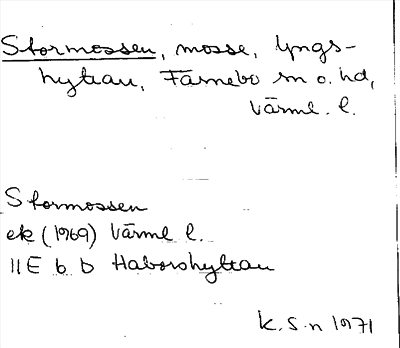 Stormossen, mosse, Lyngs-
hyttan, Färnebo sn o. hd,
Värml. l.
Stormossen
ek (1969) Värml l.
11E b b Haborshyttan
K.S-n 1971